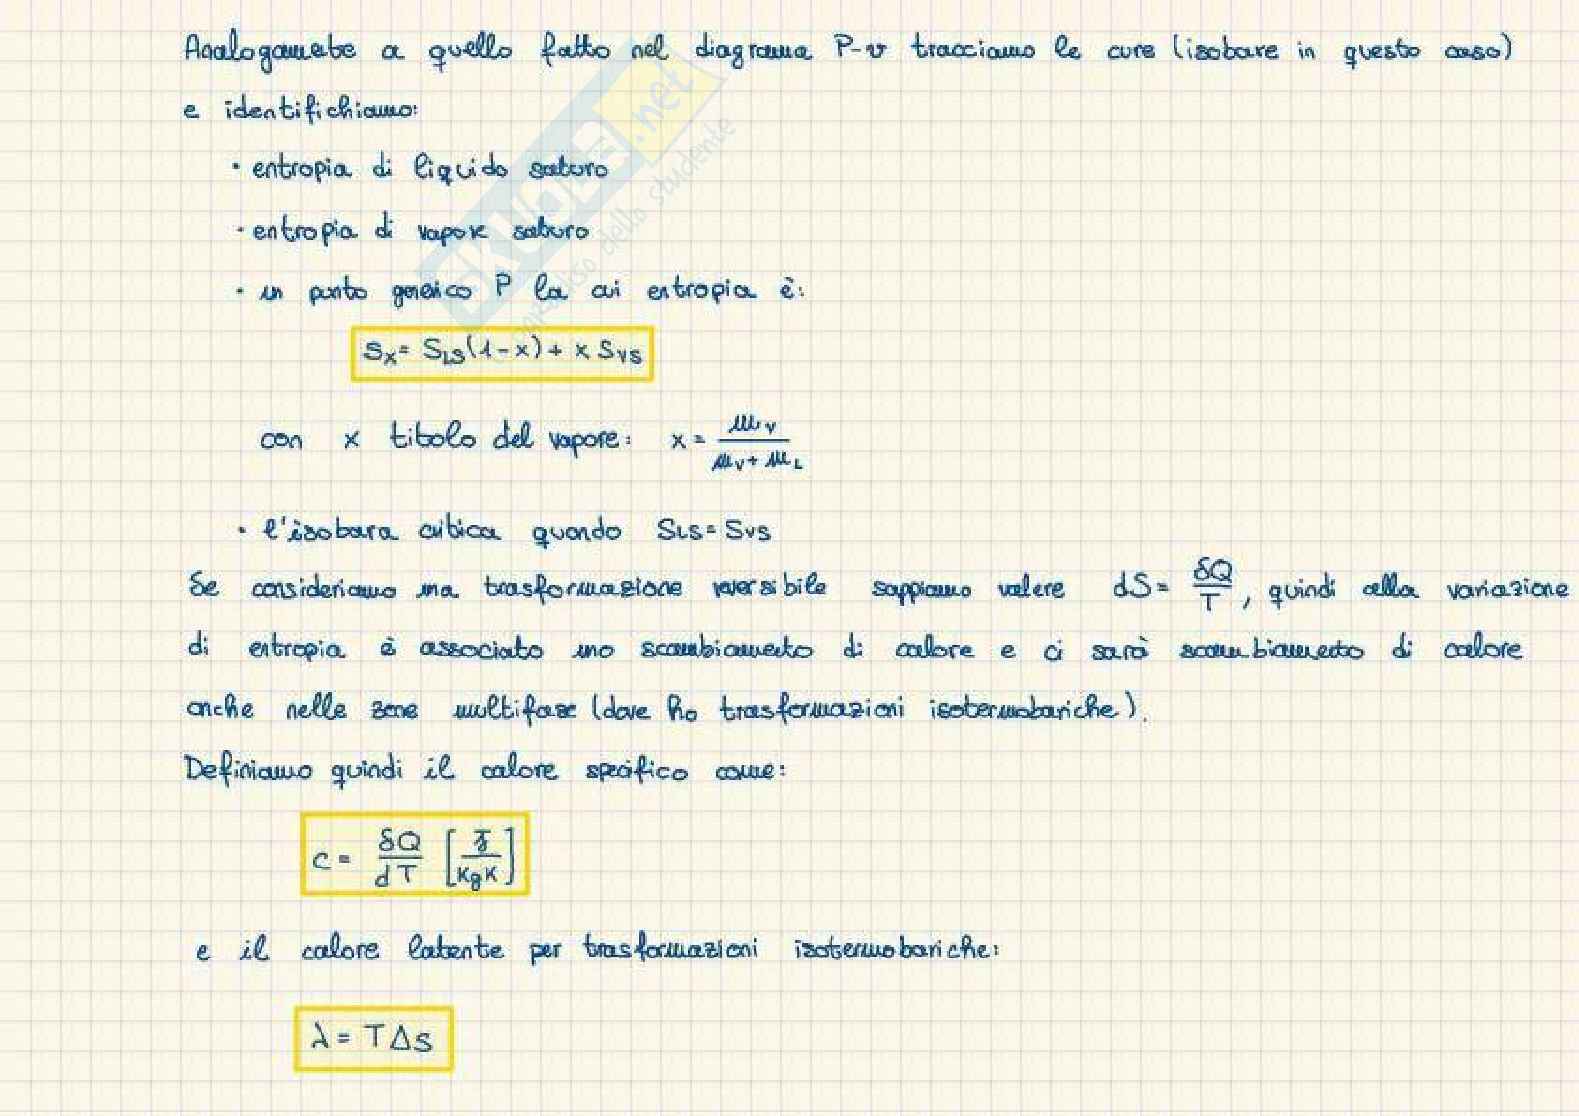 Analogamente a quello fatto nel diagramma P-v tracciamo le curve (isobare in questo caso)
e identifichiamo:
• entropia di liquido saturo
• entropia di vapore saturo
• un punto generico P la cui entropia è:
Sx = SLS(1-x) + x SVS
con x titolo del vapore: x = mv / (mv + mL)
• l'isobara critica quando SLS = SVS
Se consideriamo una trasformazione reversibile sappiamo valere dS = δQ/T, quindi alla variazione
di entropia è associato uno scambiamento di calore e ci sarà scambiamento di calore
anche nelle zone multifase (dove ho trasformazioni isotermobariche).
Definiamo quindi il calore specifico come:
c = δQ/dT [J/KgK]
e il calore latente per trasformazioni isotermobariche:
λ = TΔs
SKUOLA.net
paradiso dello studente